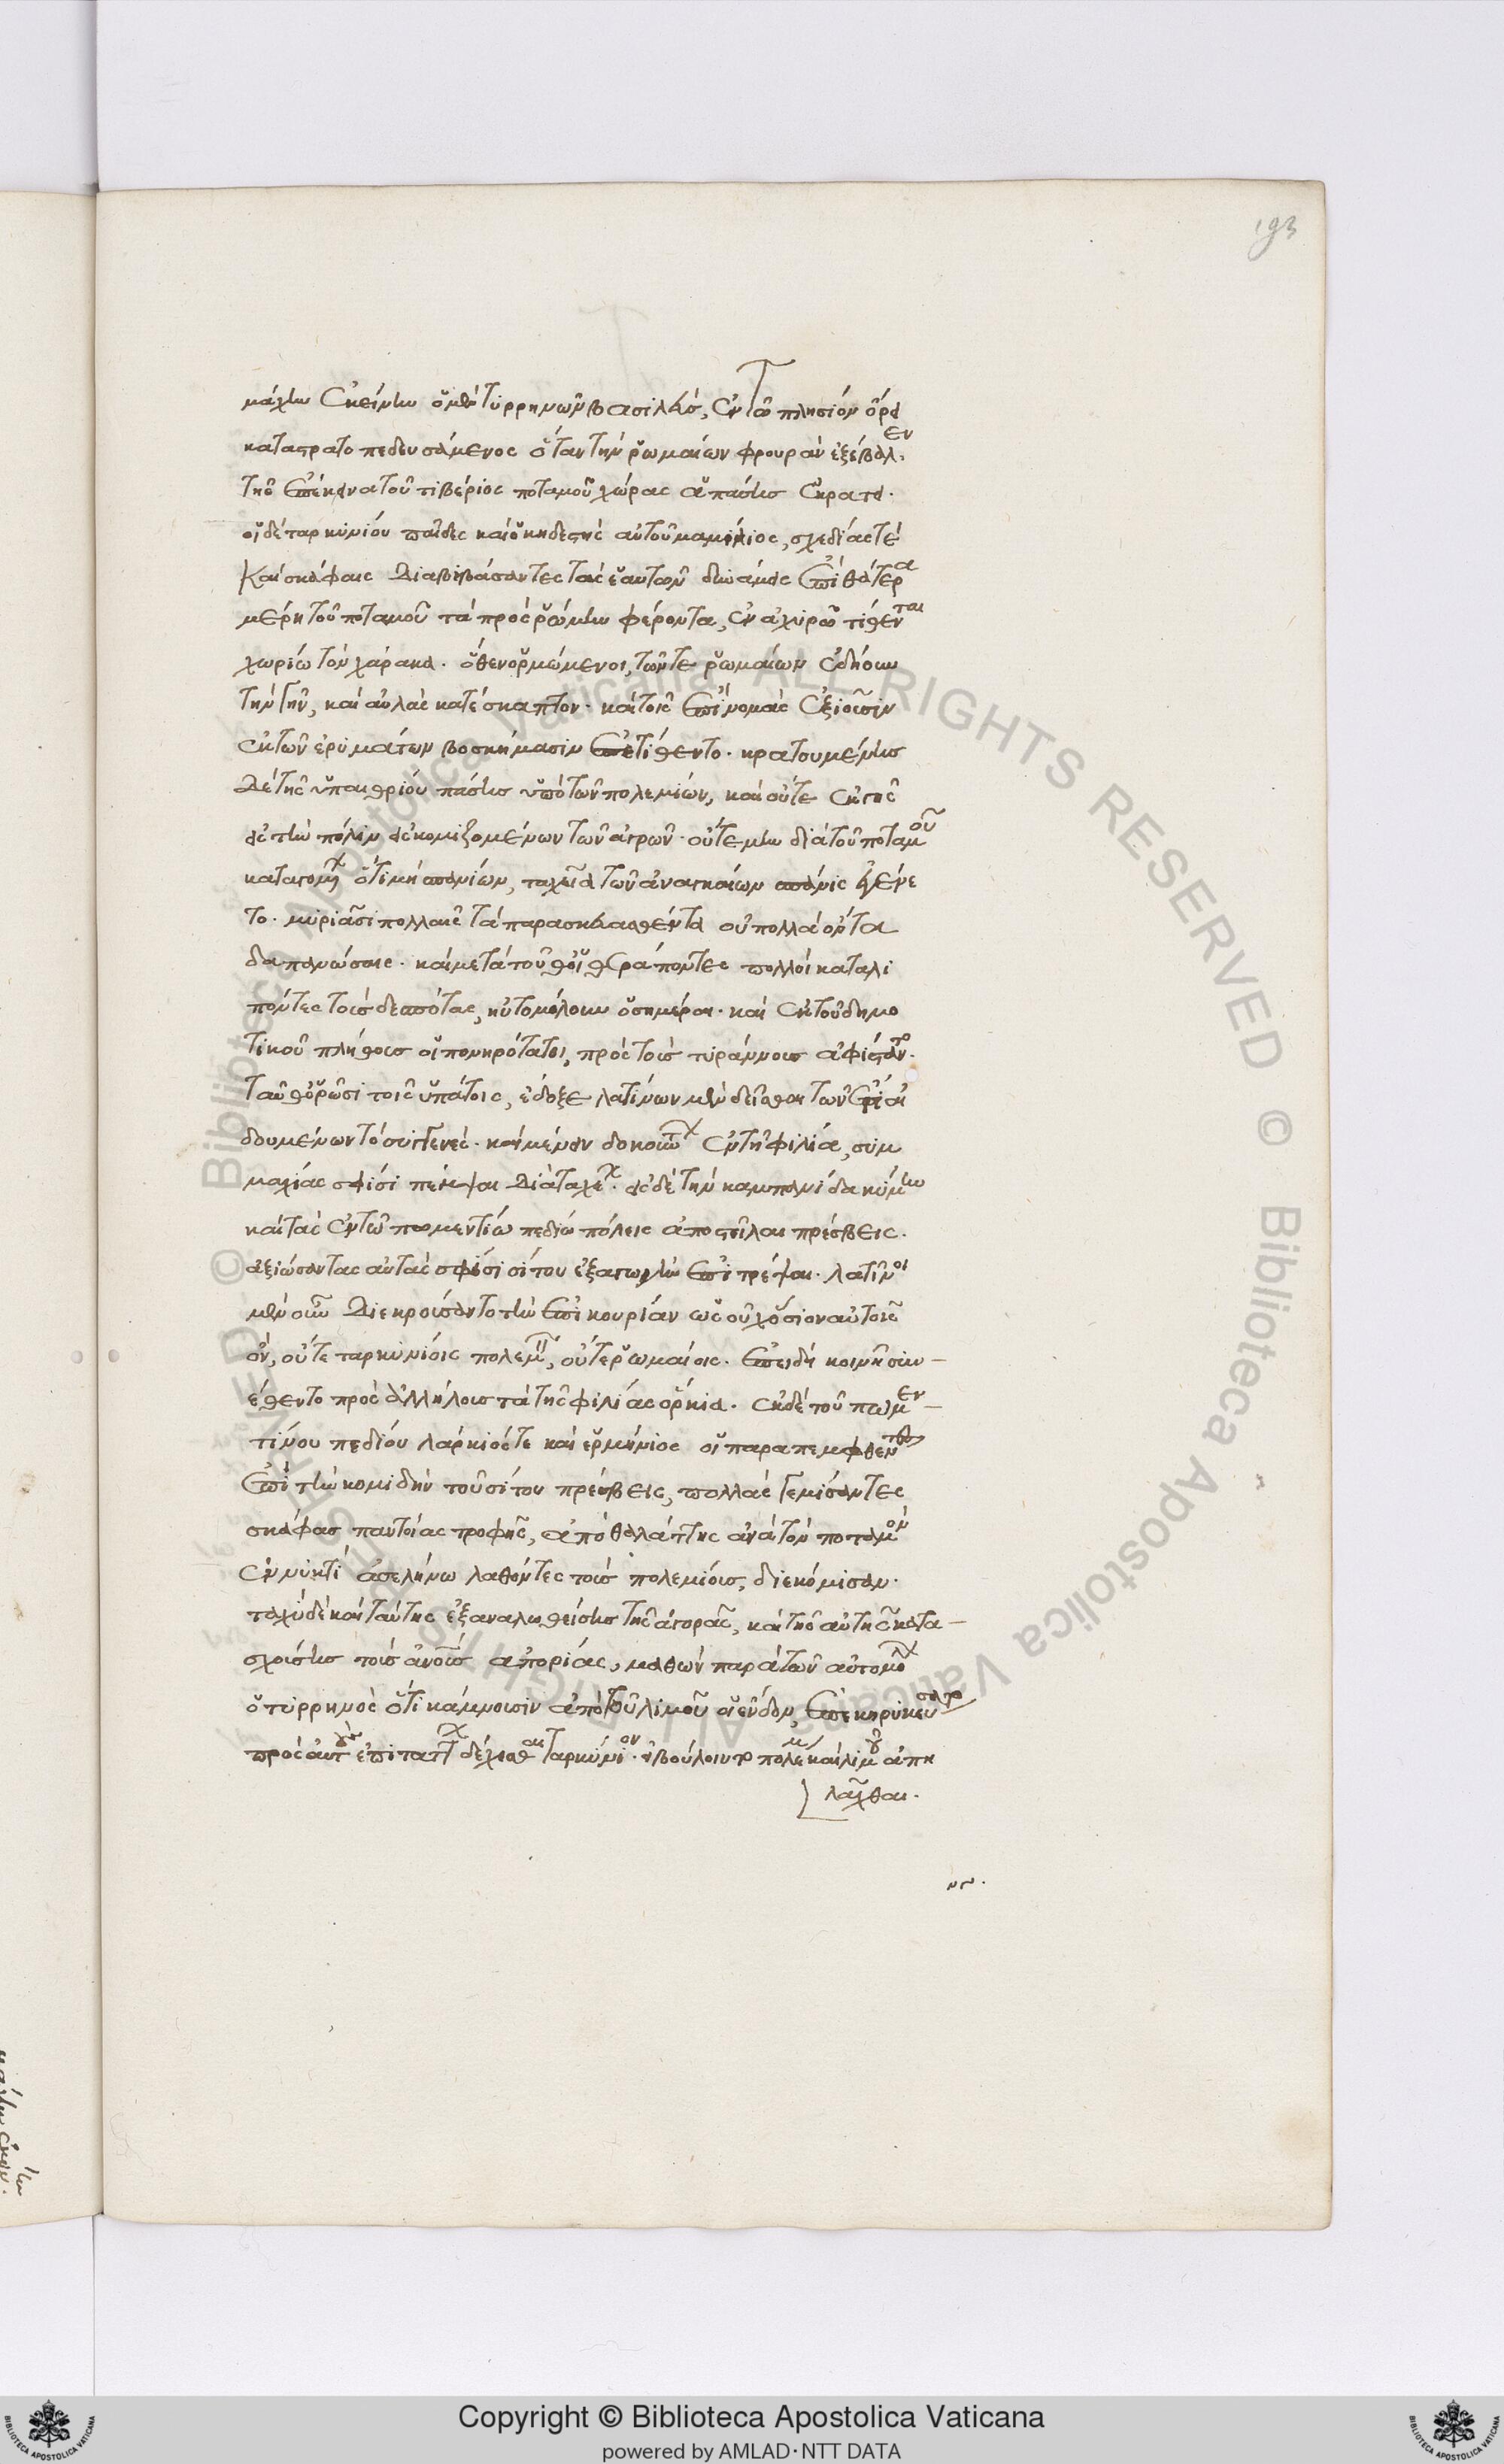 193
μάχην ἐκείνην ὁ μὲν τυρρηνῶν βασιλεύς, ἐν τῶ πλησίον ὄρει
καταστρατοπεδευσάμενος ὅταν τὴν ῥωμαίων φρουρὰν ἐξέβαλεν,
τῆς ἐπέκεινα τοῦ τιβέριος ποταμοῦ χώρας ἁπάσης ἐκράτει.
οἱ δὲ ταρκυνίου παῖδες καὶ ὁ κηδεστὴς αὐτοῦ μαμίλιος, σχεδίαις τὲ
καὶ σκάφαις διαβιβάσαντες τὰς ἑαυτῶν δυνάμεις ἐπὶ θάτερα
μέρη τοῦ ποταμοῦ τὰ πρὸς ῥώμην φέροντα, ἐν ἐχυρῶ τίθενται
χωρίω τὸν χάρακα. ὅθεν ὁρμώμενοι, τῶν τε ῥωμαίων ἐδήουν
τὴν γῆν, καὶ αὐλὰς κατέσκαπτον. καὶ τοῖς ἐπὶ νομὰς ἐξιοῦσιν
ἐκ τῶν ἐρυμάτων βοσκήμασιν ἐπετίθεντο. κρατουμένης
δὲ τῆς ὑπαιθρίου πάσης ὑπὸ τῶν πολεμίων, καὶ οὔτε ἐκ γῆς
εἰς τὴν πόλιν εἰσκομιζομένων τῶν ἀγορῶν. οὔτε μὴν διὰ τοῦ ποταμοῦ
καταγομ ὅτι μὴ σπανίων, ταχεῖα τῶν ἀναγκαίων σπάνις ἐγένε
το. μυριάσι πολλαῖς τὰ παρασκευασθέντα οὐ πολλὰ ὄντα
δαπανώσαις. καὶ μετὰ τοῦθ οἱ θεράποντες πολλοὶ καταλι
πόντες τοὺς δεσπότας, ηὐτομόλουν ὁσημέραι. καὶ ἐκ τοῦ δημο
τικοῦ πλήθους οἱ πονηρότατοι, πρὸς τοὺς τυράννους ἀφίσταντο.
ταῦθ ὁρῶσι τοῖς ὑπάτοις, ἔδοξε λατίνων μὲν δεῖσθαι τῶν ἔτι αἰ
δουμένων τὸ συγγενές. καὶ μένειν δοκού ἐν τῇ φιλία, συμ
μαχίας σφίσι πέμψαι διὰ ταχέ. εἰς δὲ τὴν καμπανίδα κύμην
καὶ τὰς ἐν τῶ πωμεντίω πεδίω πόλεις ἀποστεῖλαι πρέσβεις.
ἀξιώσοντας αὐτὰς σφίσι σίτου ἐξαγωγὴν ἐπιτρέψαι. λατῖνοι
μὲν οὖν διεκρούσαντο τὴν ἐπικουρίαν ὡς οὐχ ὅσιον αὐτοῖς
ὂν, οὔτε ταρκυνίοις πολεμ, οὔτε ῥωμαίοις. ἐπειδὴ κοινῆ συν-
έθεντο πρὸς ἀλλήλους τὰ τῆς φιλίας ὅρκια. ἐκ δὲ τοῦ πωμεν-
τίνου πεδίου λάρκιός τε καὶ ἑρμήνιος οἱ παραπεμφθέντες
ἐπὶ τὴν κομιδὴν τοῦ σίτου πρέσβεις, πολλὰς γεμίσαντες
σκάφας παντοίας τροφῆς, ἀπὸ θαλάττης ἀνὰ τὸν ποταμὸν
ἐν νυκτὶ ἀσελήνω λαθόντες τοὺς πολεμίους, διεκόμισαν.
ταχὺ δὲ καὶ ταύτης ἐξαναλωθείσης τῆς ἀγορᾶς, καὶ τῆς αὐτῆς κατα-
σχούσης τοὺς ἀνους ἀπορίας, μαθὼν παρὰ τῶν αὐτομό
ὁ τυρρηνὸς ὅτι κάμνουσιν ἀπὸ τοῦ λιμοῦ οἱ ἔνδον, ἐπεκηρυκεύσατο
πρὸς αὐτοὺς ἐπιτάττ δέχεσθαι ταρκύνιον. εἰ βούλοιντο πολέμου καὶ λιμοῦ ἀπη
λλάχθαι.